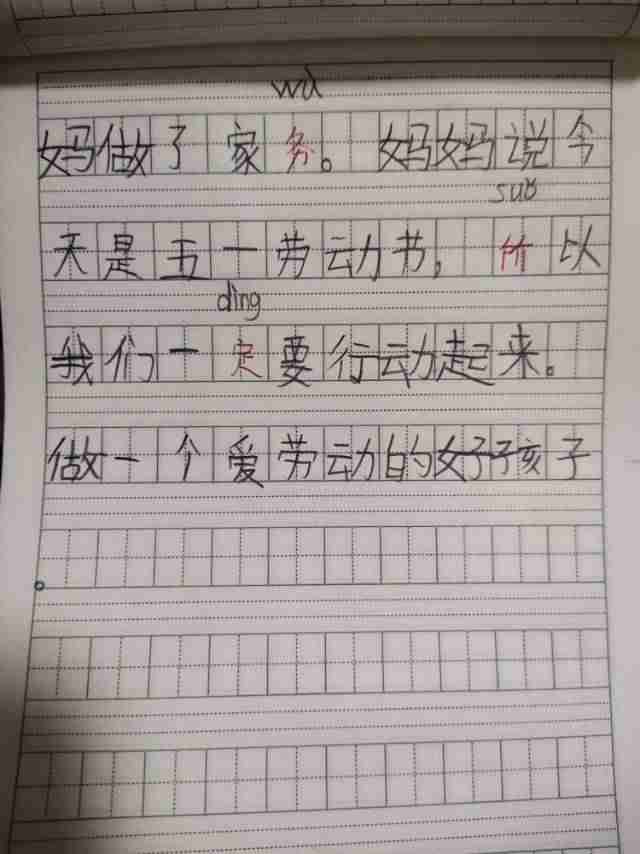 wù
妈做了家务。妈妈说今
suǒ
天是五一劳动书，所以
dìng
我们一定要行动起来。
做一个爱劳动的好孩子